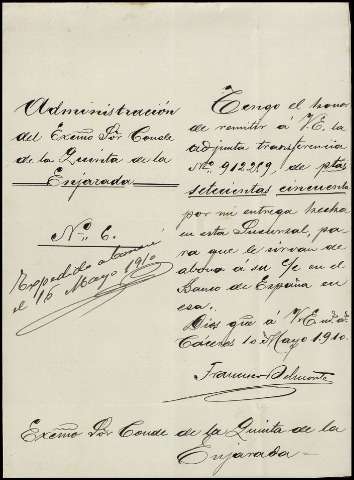 Administración
del Excmo Sor Conde
de la Quinta de la
Enjarada
Nº. 6.
Expedido
el 16 Mayo 1910
Tengo el honor
de remitir á V.E. la
adjunta transferencia
Nº. 912289, de ptas
setecientas cincuenta
por mi entrega hecha
en esta Sucursal, pa
ra que le sirvan de
abono á su c/c en el
Banco de España en
esa.
Dios gue á V.E. m. a.
Cáceres 10 Mayo 1910.
Francisco Belmonte
Excmo Sor Conde de la Quinta de la
Enjarada